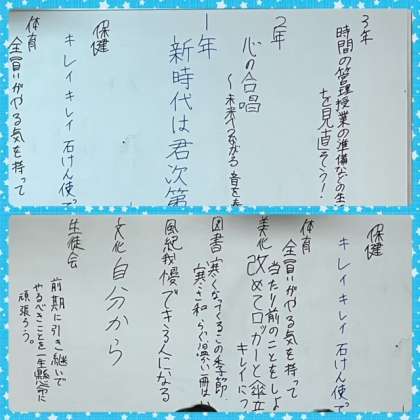 3年
時間の管理授業の準備などの生
を見直そう!
2年
心の合唱
〜未来へつながる 音を
1年
新時代は君次第
保健
キレイキレイ石けん使っ
体育
全員がやる気を持って
保健
キレイキレイ 石けん使っ
体育
全員がやる気を持って
当たり前のことをしよ
美化
改めてロッカーと傘立
キレイに
図書
寒くなってくるこの季節、
寒さ和らぐ温い一冊
風紀 我慢できる人になる
文化 自分から
生徒会
前期に引き継いで
やるべきことを一生懸命に
頑張ろう。